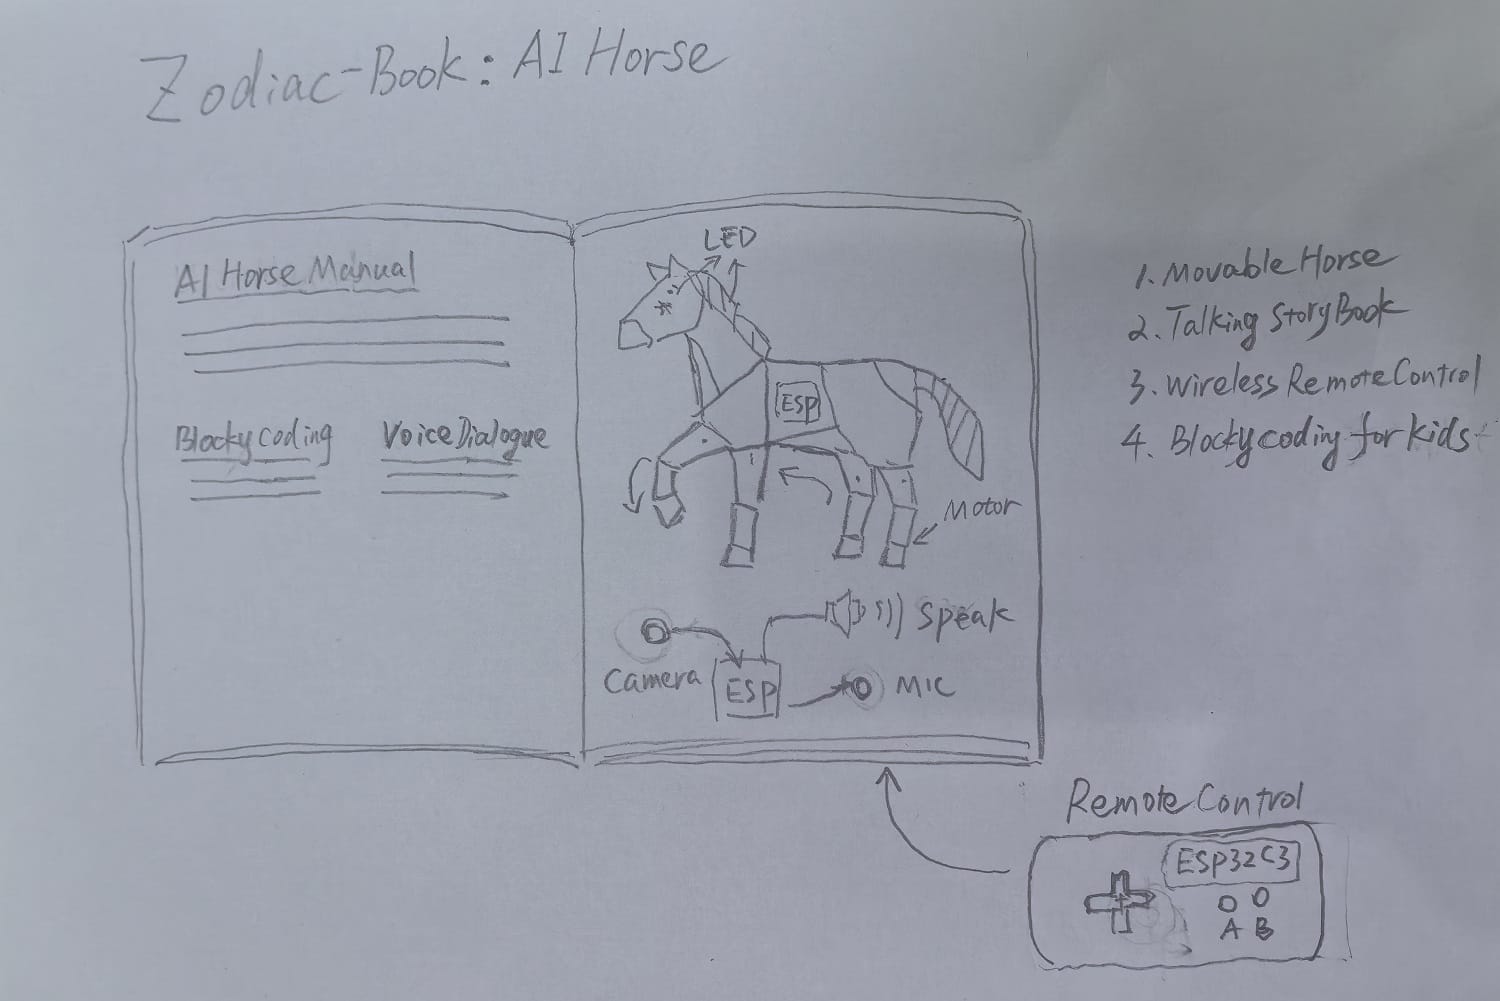 Zodiac-Book: AI Horse
AI Horse Manual
Blocky Coding
Voice Dialogue
LED
ESP
Motor
Speak
Camera
ESP
MIC
1. Movable Horse
2. Talking Story Book
3. Wireless Remote Control
4. Blocky coding for kids
Remote Control
ESP32C3
A B